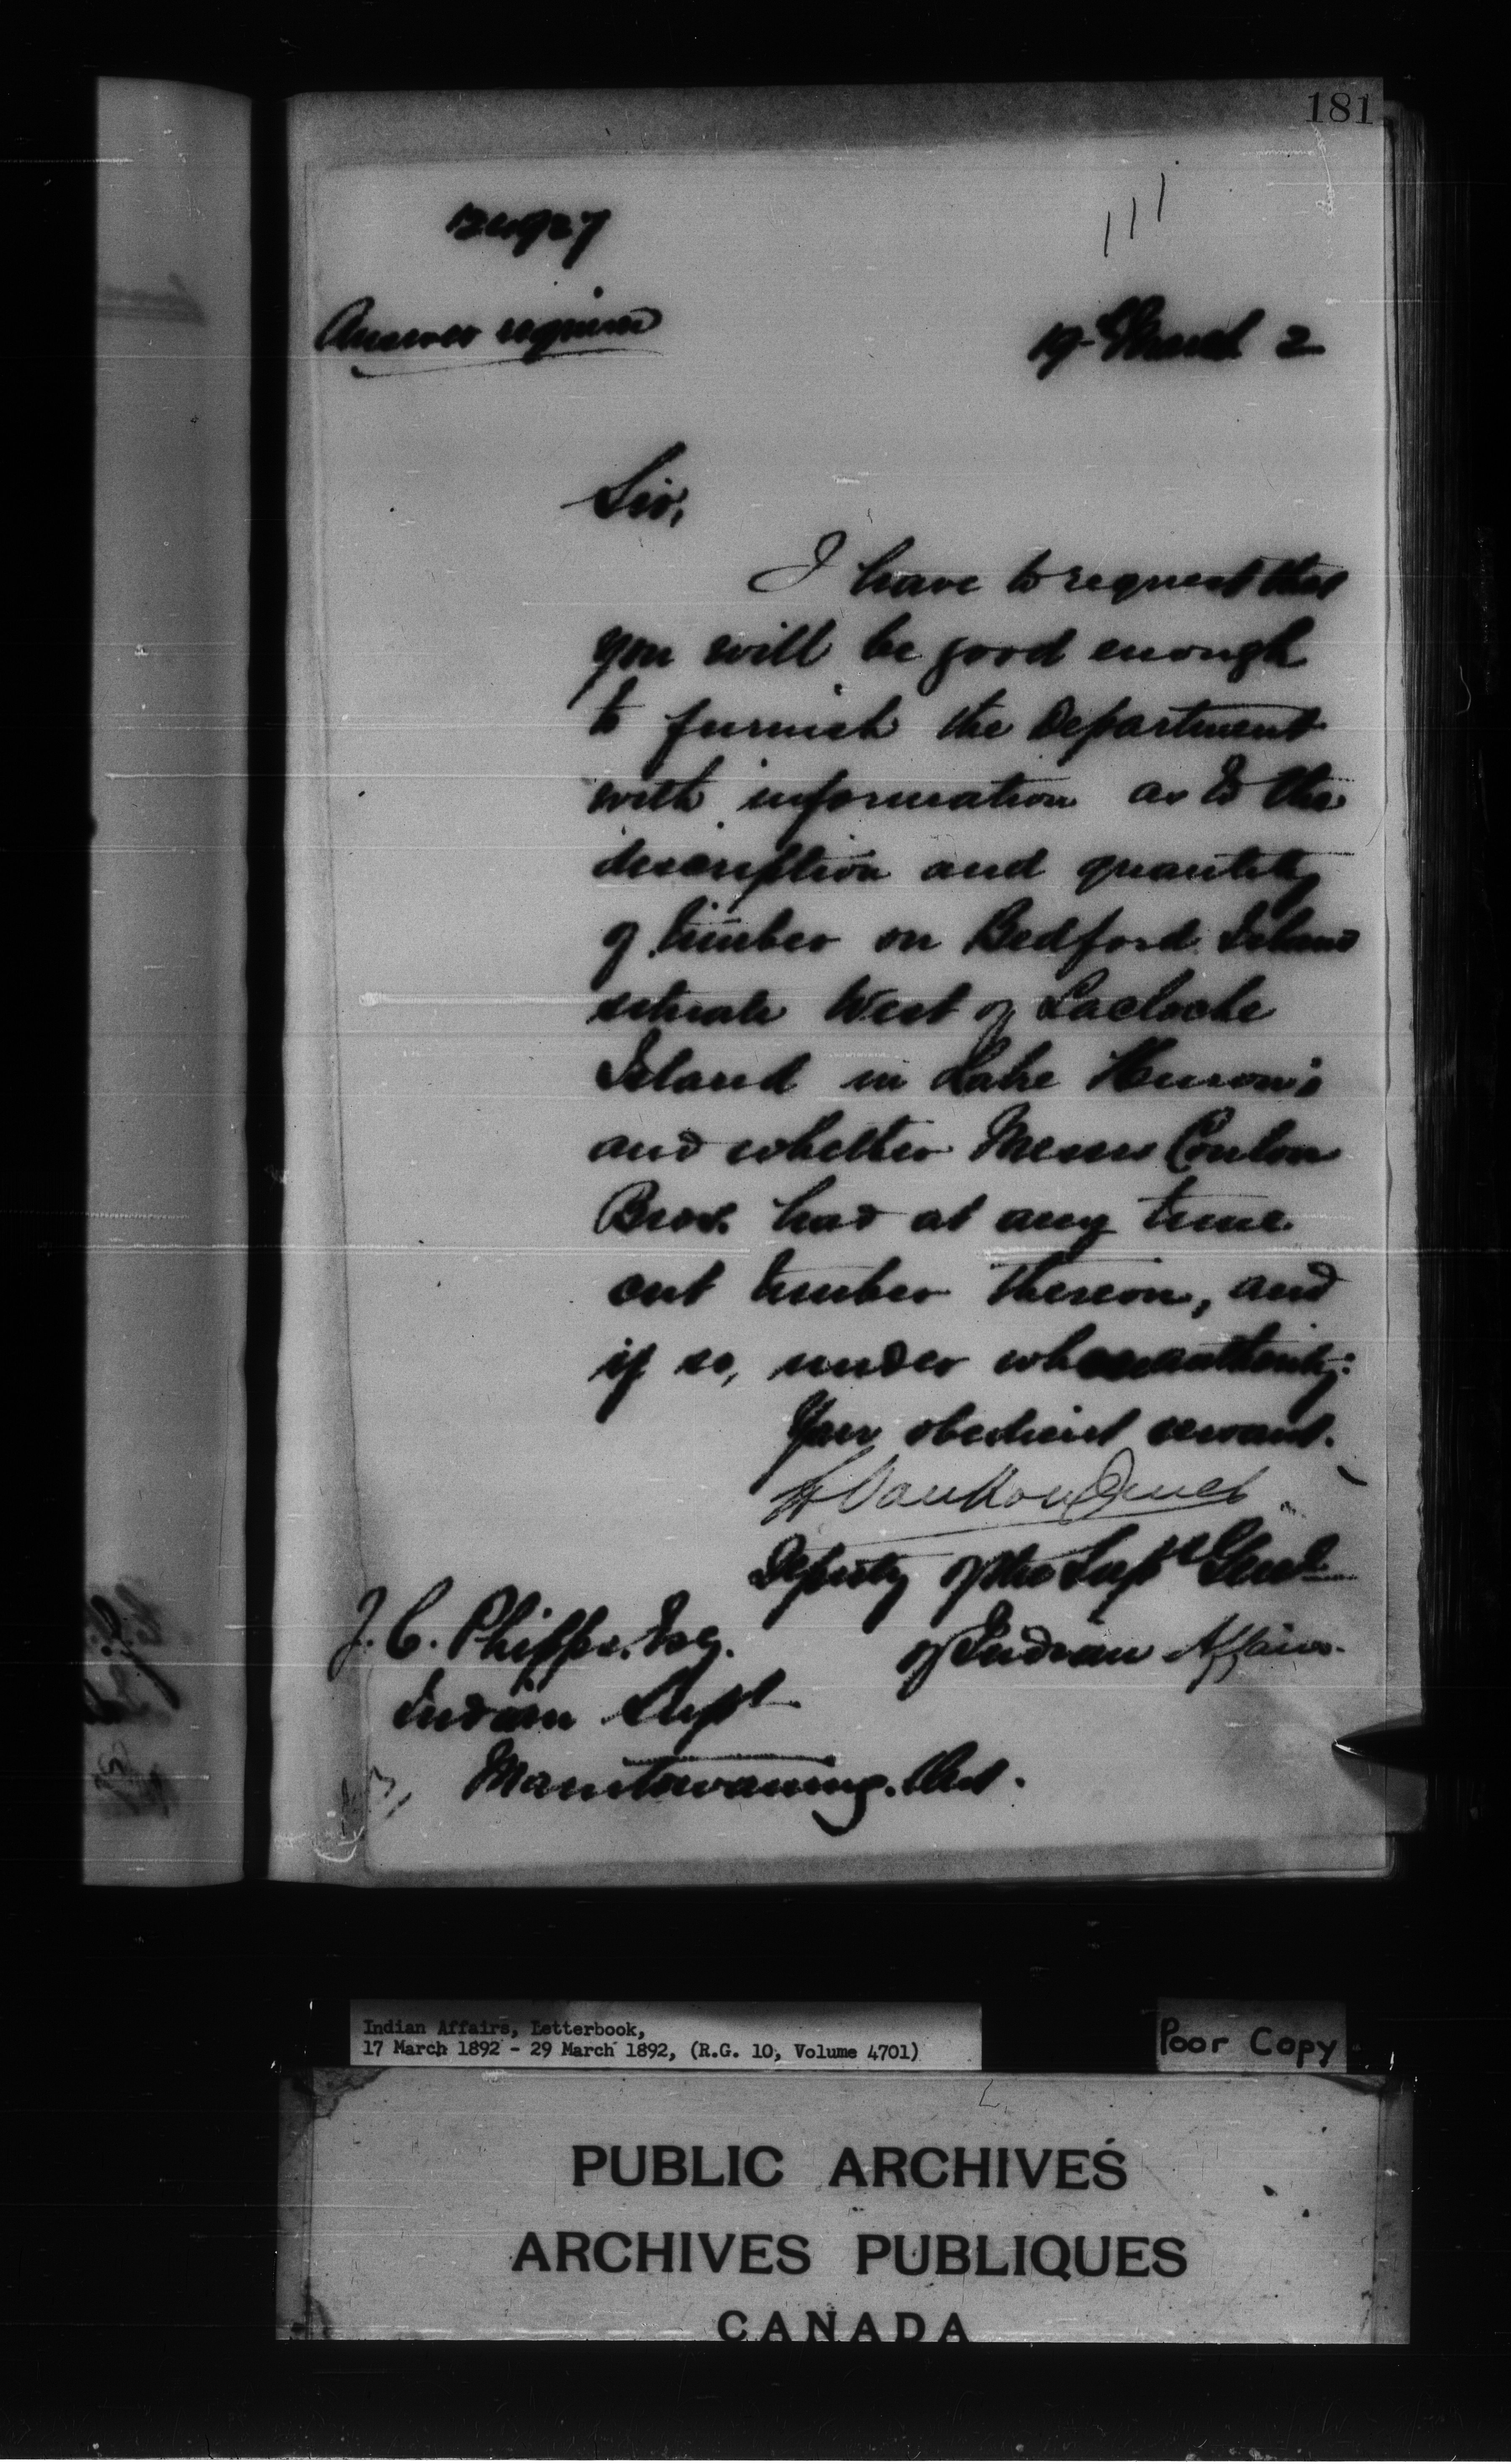 181
Answer required
19th March 2
Sir,
I have to request that
you will be good enough
to furnish the Department
with information as to the
description and quantity
of timber on Bedford Island
situate West of Lacloche
Island in Lake Huron;
and whether Messrs Conlon
Bros. had at any time
cut timber thereon, and
if so, under whose authority.
Your obedient servant.
L Vankoughnet
Deputy of the Supt Genl
of Indian Affairs.
J. C. Phipps, Esq.
Indian Supt
Manitowaning. Ont.
Indian Affairs, Letterbook,
17 March 1892 - 29 March 1892, (R.G. 10, Volume 4701)
Poor Copy
PUBLIC ARCHIVES
ARCHIVES PUBLIQUES
CANADA